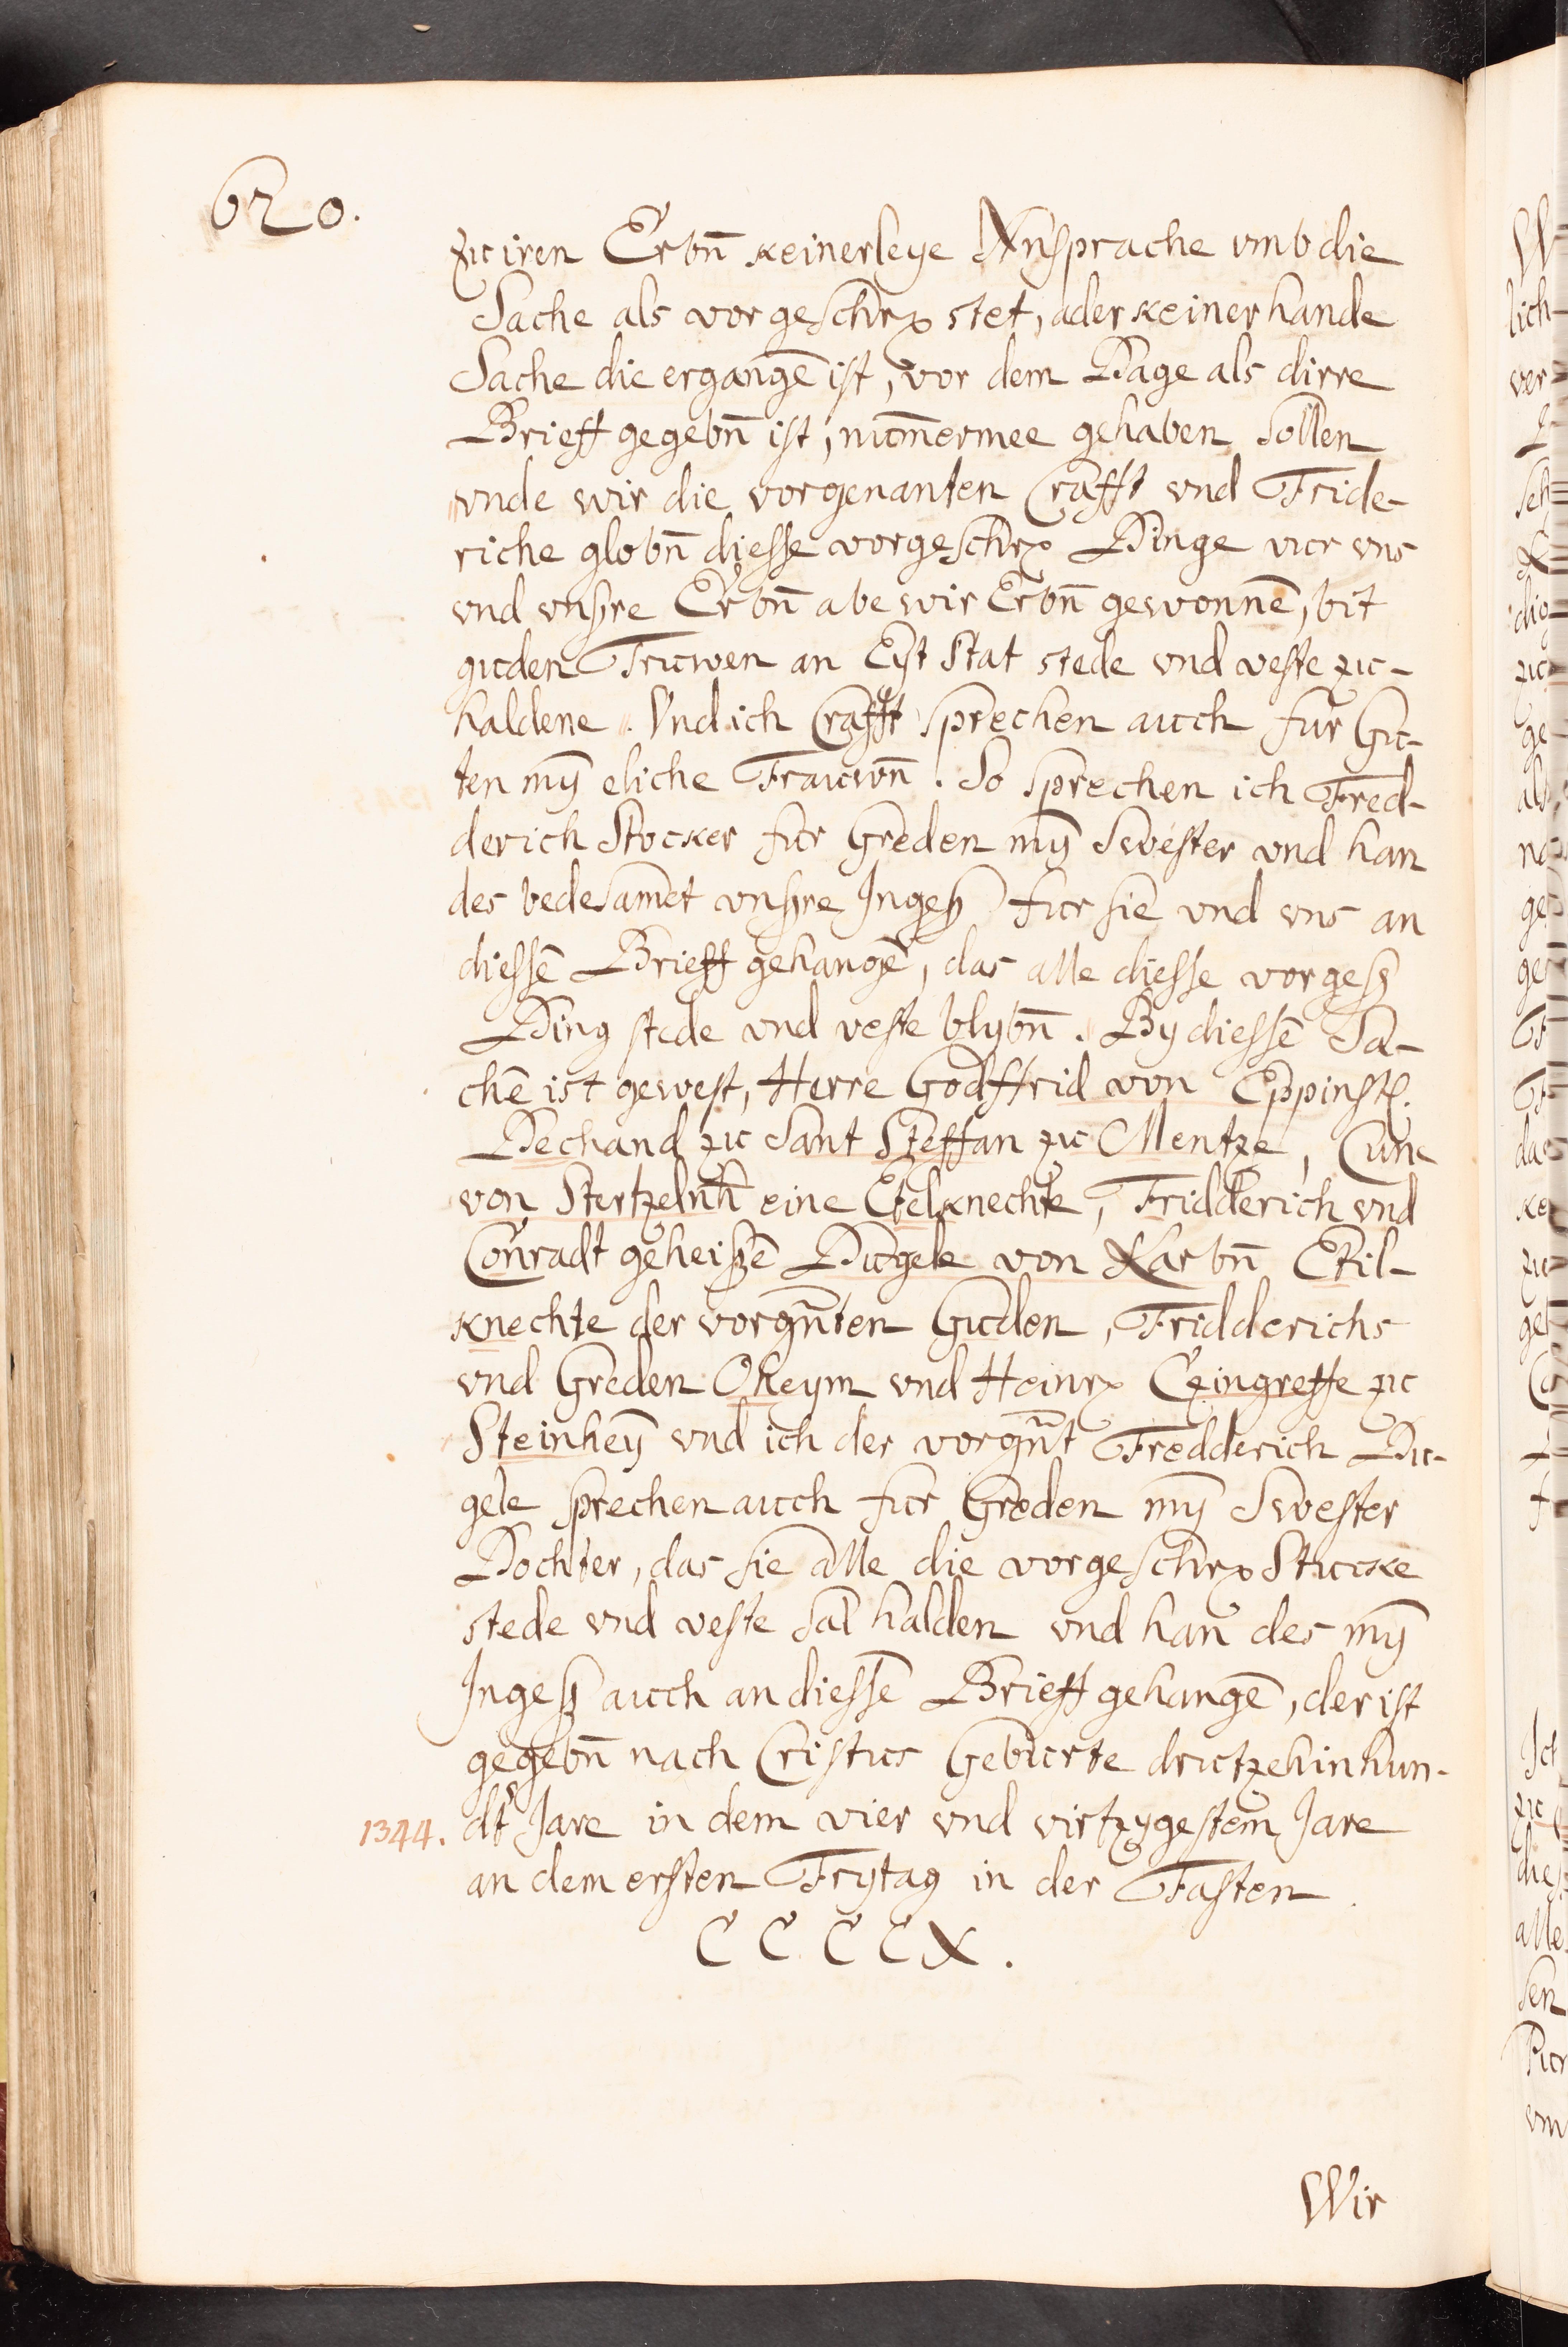 620.
zu iren Erbn̄ keinerleye Ansprache vmb die
Sache als vorgeschrx stet, ader keinerhande
Sache die ergangē ist, vor dem Dage als dirre
Brieff gegebn̄ ist, nūmermee gehaben sollen
vnde wir die vorgenanten Crafft vnd Fride-
riche globn̄ diesse vorgeschrx Dinge vur vns
vnd vnsre Erbn̄ abe wir Erbn̄ gewonnē, bit
guden Truwen an Eyt Stat stede vnd veste zu-
haldene. Vnd ich Crafft sprechen auch fur Gu-
ten mȳ eliche Frauwn̄. So sprechen ich Fred-
derich Stocker fur Greden mȳ Swester vnd han
des bedesamēt vnsre Ingeß fur sie vnd vns an
diessē Brieff gehangē, das alle diesse vorgeß
Ding stede vnd veste blybn̄. By diessē Sa-
chē ist gewest, Herre Godffrid von Eppinst.
Dechand zu Sant Steffan zu Mentze, Cune
von Stertzelnh̄ eine Etelknechte, Fridderich vnd
Conradt geheißē Dugele von Karbn̄ Etil-
knechte der vorgn̄ten Guden, Fridderichs
vnd Greden Oheym vnd Heinrx Czingreffe zu
Steinheȳ vnd ich der vorgn̄t Fredderich Du-
gele sprechen auch fur Greden mȳ Swester
Dochter, das sie alle die vorgeschrx Stucke
stede vnd veste sal halden vnd han des mȳ
Ingeß auch an diessē Brieff gehangē, der ist
gegebn̄ nach Cristus Geburte drutzehinhun-
1344. dt Jare in dem vier vnd virtzygestem Jare
an dem ersten Frytag in der Fasten
CCCCX.
Wir